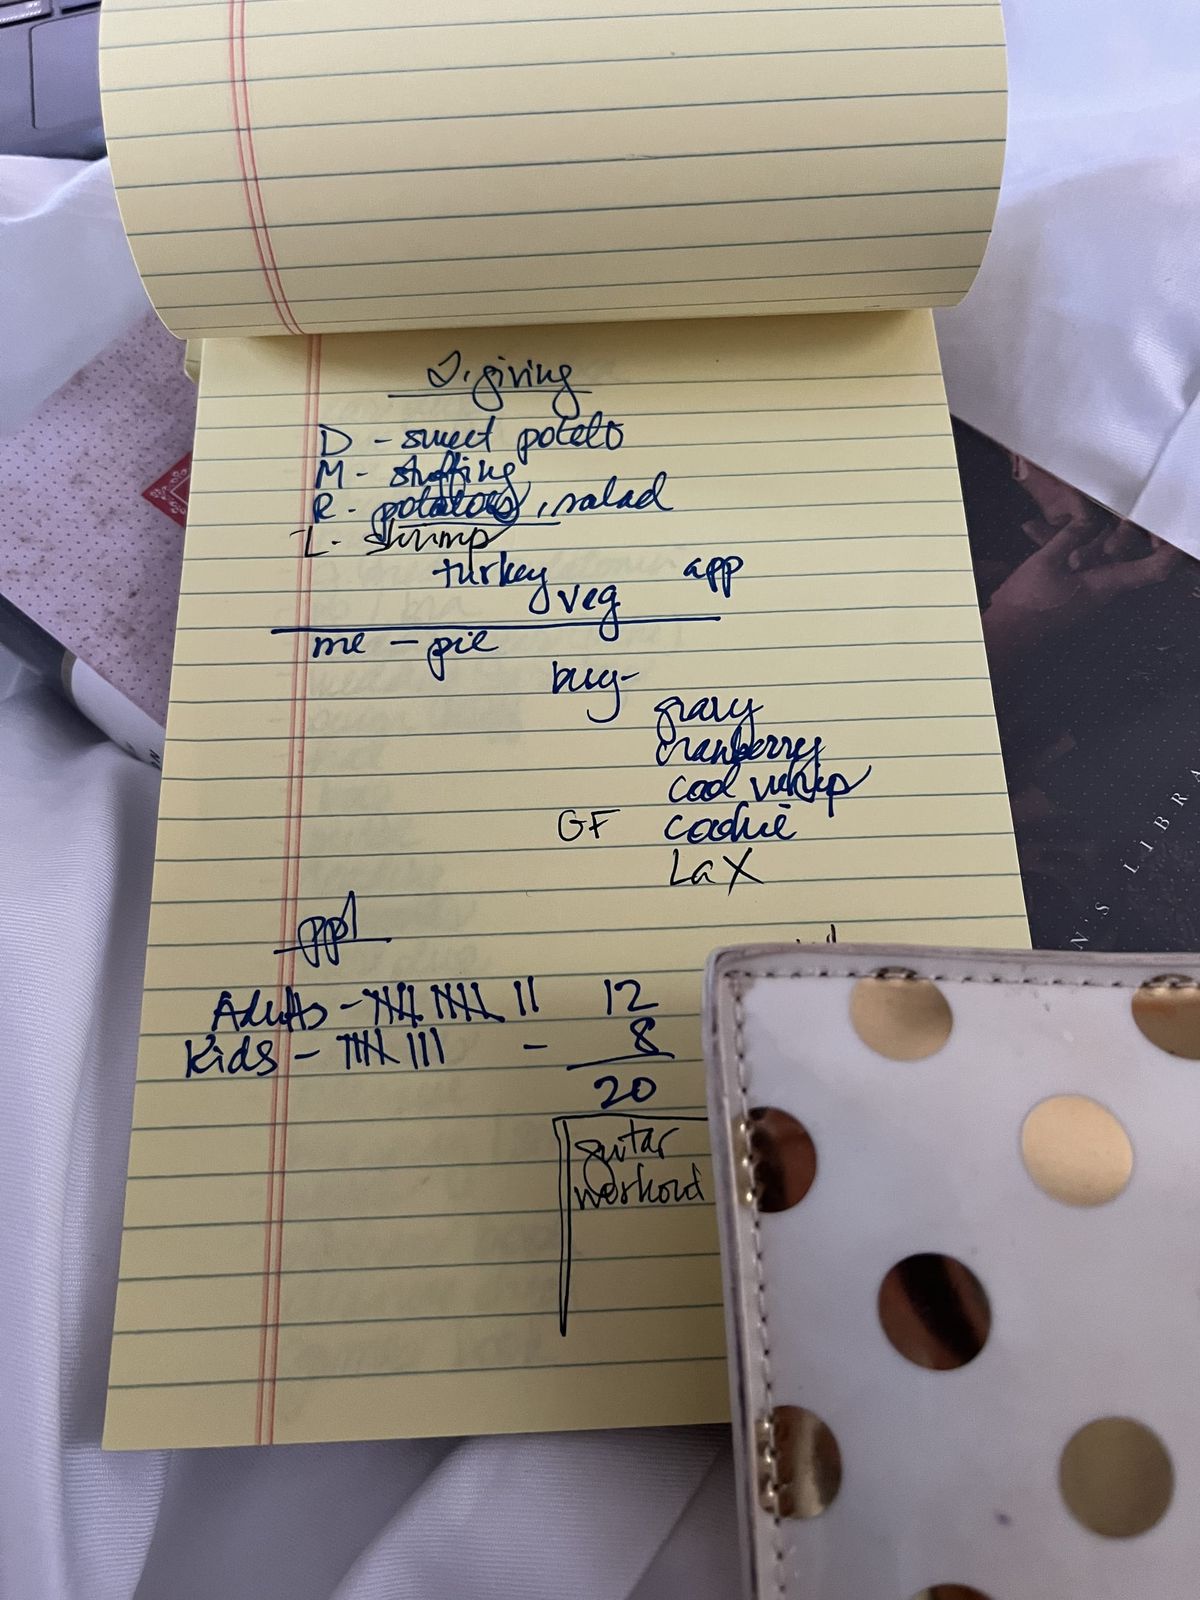 T.giving
D - sweet potato
M - stuffing
R - potatoes, salad
L - shrimp
turkey app
veg
me - pie
buy -
gravy
cranberry
cool whip
GF cookie
LaX
ppl
Adults - 12
Kids - - 8
20
guitar
workout
N'S LIBRA